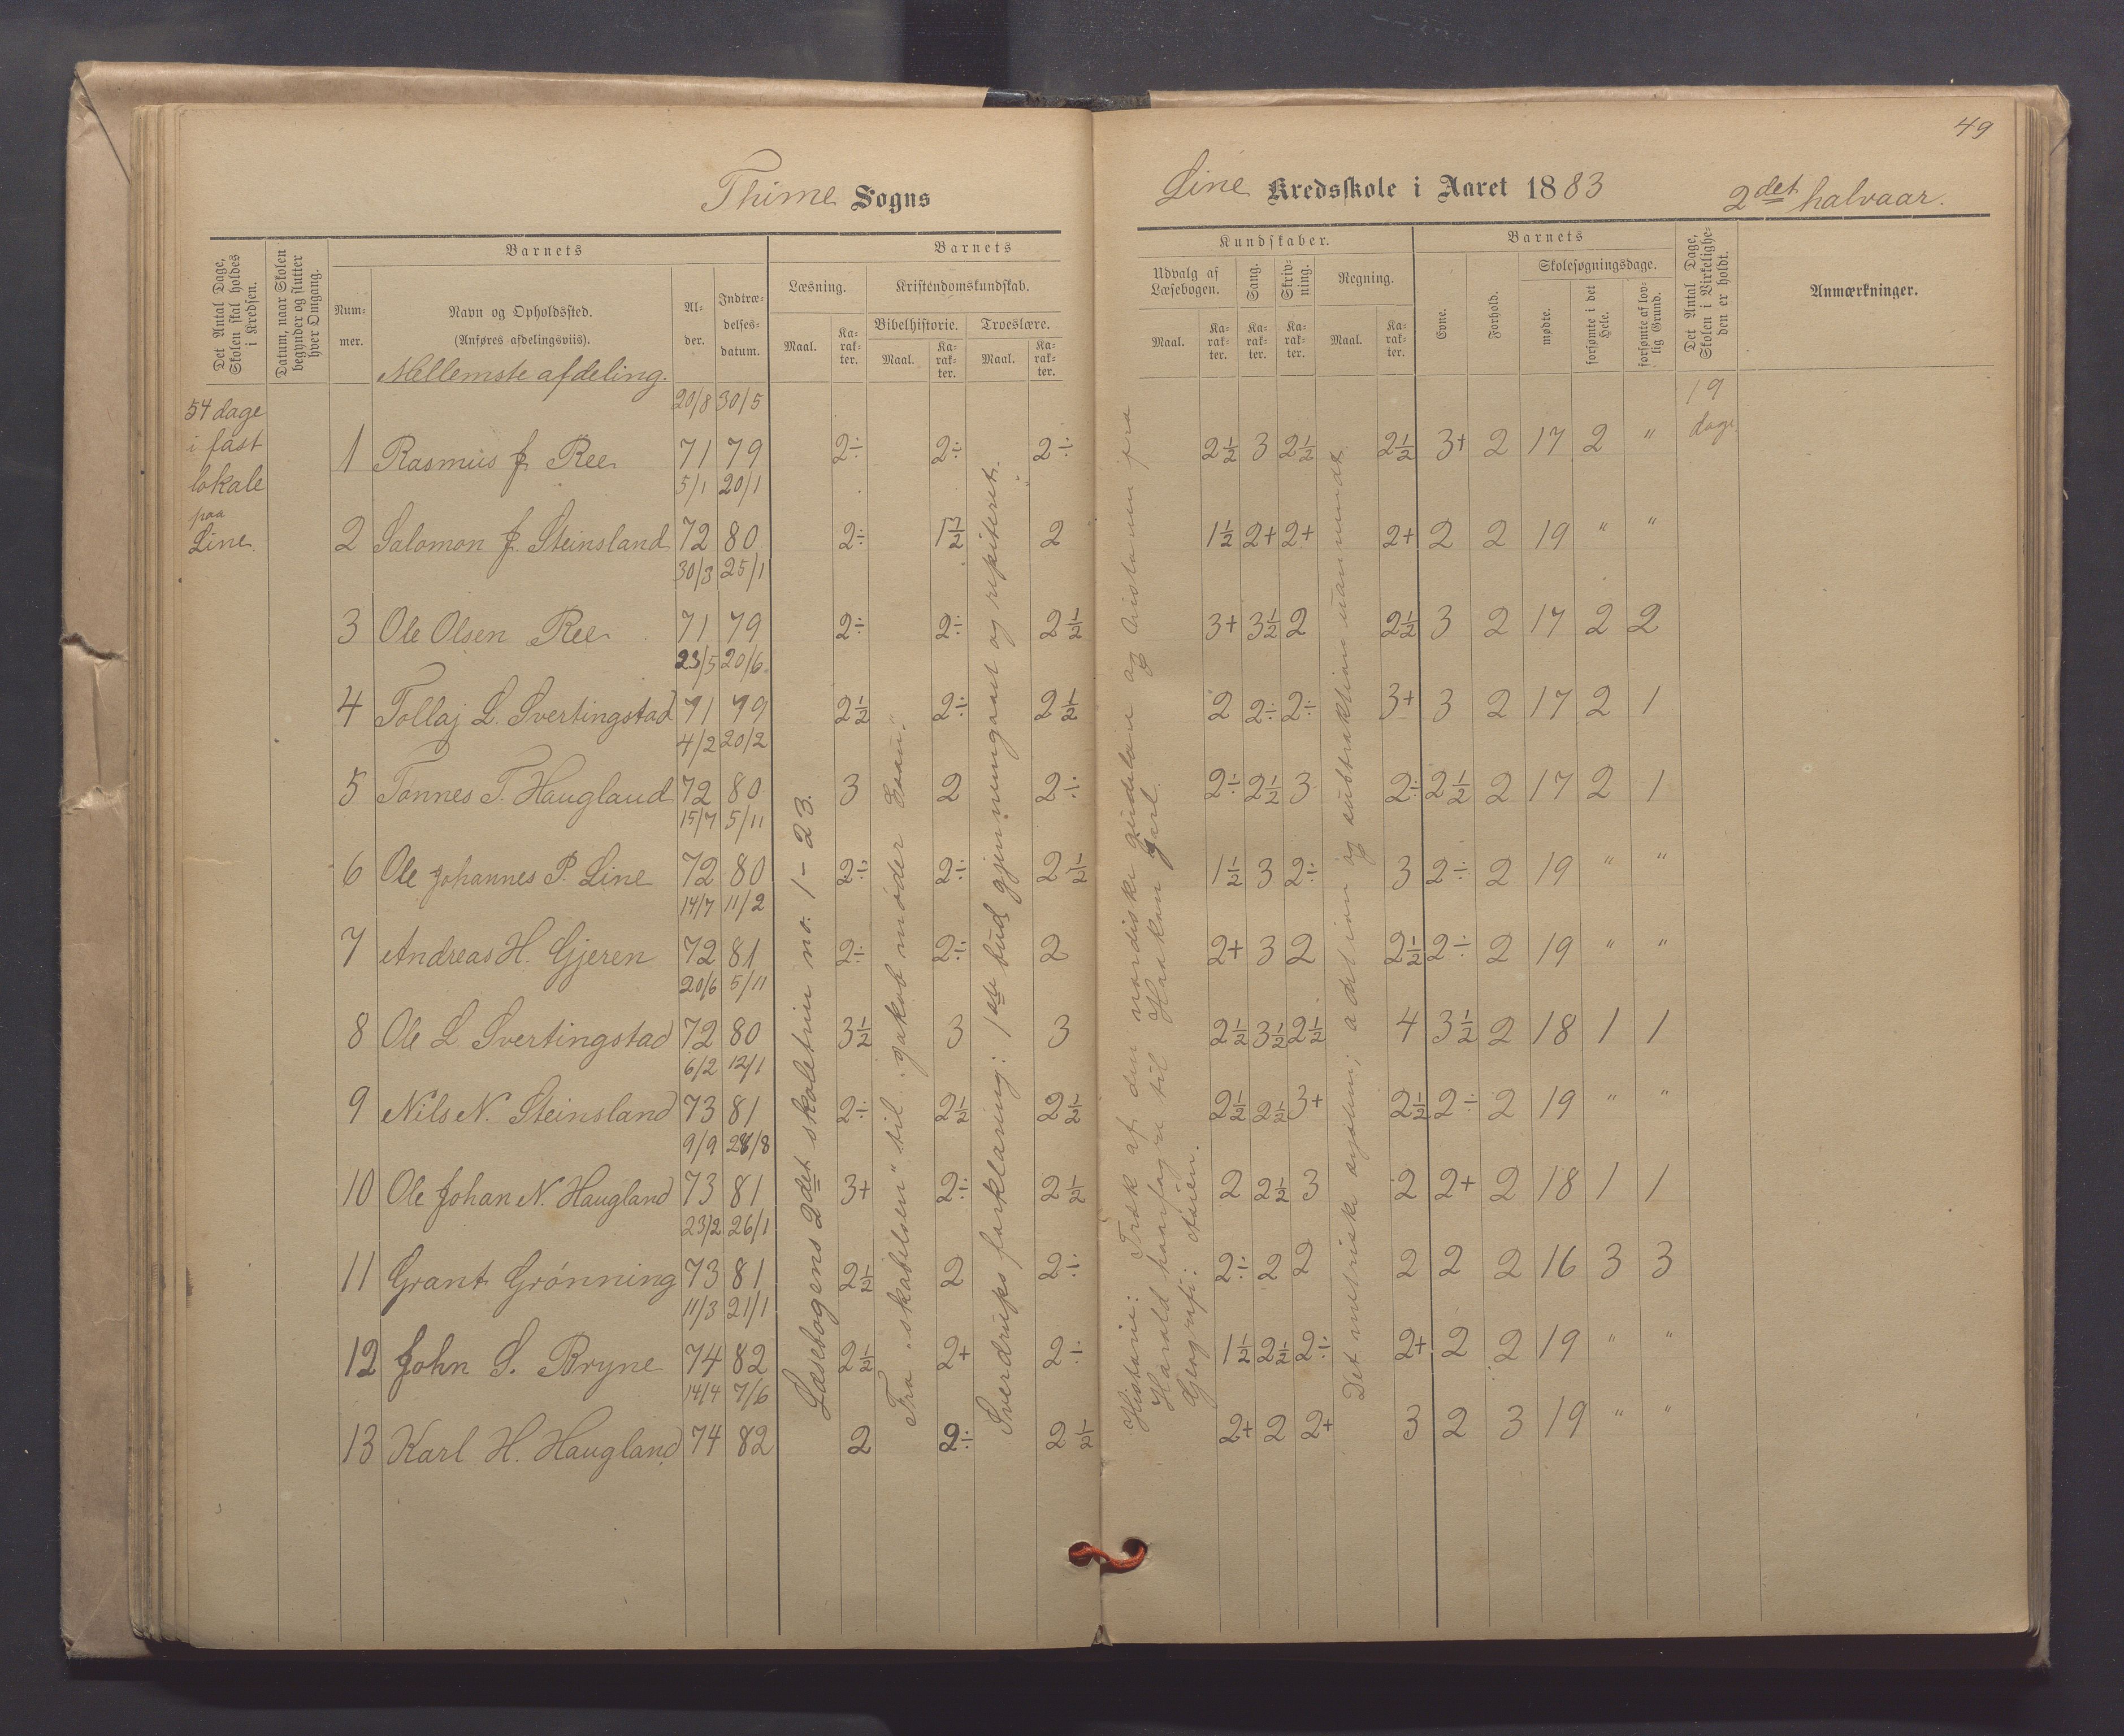 49
Thime Sogns
Line Kredsskole i Aaret 1883
2det halvaar.
Det Antal Dage, Skolen skal holdes i Kredsen.
Datum, naar Skolen begynder og slutter hver Omgang.
Barnets
Barnets
Kundskaber.
Barnets
Det Antal Dage, Skolen i Virkeligheden er holdt.
Anmærkninger.
Nummer.
Navn og Opholdssted.
(Anføres afdelingsviis).
Alder.
Indtrædelsesdatum.
Læsning.
Kristendomskundskab.
Bibelhistorie.
Troeslære.
Udvalg af Læsebogen.
Sang.
Skrivning.
Regning.
Evne.
Forhold.
Skolesøgningsdage.
mødte.
forsømte i det Hele.
forsømte af lovlig Grund.
Maal. Karakter. Maal. Karakter. Maal. Karakter. Maal. Karakter. Karakter. Karakter. Maal. Karakter.
Mellemste afdeling.
54 dage
i fast
lokale
paa
Line
19
dage
20/8 30/5
1 Rasmus J. Ree 71 79 2÷ 2÷ 2÷ 2½ 3 2½ 2½ 3+ 2 17 2 "
5/1 20/1
2 Salomon J. Steinsland 72 80 2÷ 1½ 2 1½ 2+ 2+ 2+ 2 2 19 " "
30/3 25/1
3 Ole Olsen Ree 71 79 2÷ 2÷ 2½ 3+ 3½ 2 2½ 3 2 17 2 2
23/5 20/6
4 Tollaj L. Svertingstad 71 79 2½ 2÷ 2½ 2 2÷ 2÷ 3+ 3 2 17 2 1
4/2 20/2
5 Tønnes T. Haugland 72 80 3 2 2÷ 2÷ 2½ 3 2÷ 2½ 2 17 2 1
15/7 5/11
6 Ole Johannes P. Line 72 80 2÷ 2÷ 2½ 1½ 3 2÷ 3 2÷ 2 19 " "
14/7 11/2
7 Andreas H. Gjeren 72 81 2÷ 2÷ 2 2+ 3 2 2½ 2÷ 2 19 " "
20/6 5/11
8 Ole L Svertingstad 72 80 3½ 3 3 2½ 3½ 2½ 4 3½ 2 18 1 1
6/2 12/1
9 Nils N. Steinsland 73 81 2÷ 2½ 2½ 2½ 2½ 3+ 2½ 2÷ 2 19 " "
9/9
10 Ole Johan N. Haugland 73 81 3+ 2÷ 2½ 2 2½ 3 2 2+ 2 18 1 1
23/2 26/1
11 Grant Grønning 73 81 2½ 2 2÷ 2÷ 2 2 2 2 2 16 3 3
11/3 21/1
12 John S. Bryne 74 82 2½ 2+ 2÷ 1½ 2½ 2÷ 2+ 2 2 19 " "
14/4 7/6
13 Karl H. Haugland 74 82 2 2÷ 2½ 2+ 2 2+ 3 2 3 19 " "
Læsebogens 2det skoletrin no: 1-23.
Fra "skabelsen" til "Jakob møder Esau".
Sverdrups forklaring: 1ste bud gjennemgaaet og repiteret.
Historie: Træk af den nordiske gudelære og historien fra
Harald haarfagre til Haakon Jarl.
Geografi: Asien.
Det metriske system; addition og subtraktion ubenævnt